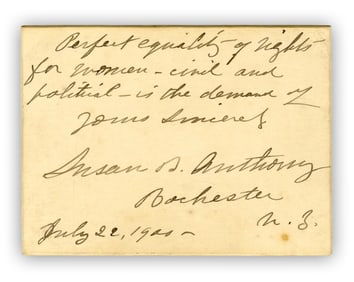 Perfect equality of rights
for women - civil and
political - is the demand of
Yours Sincerely
Susan B. Anthony
Rochester
N. Y.
July 22, 1900 -